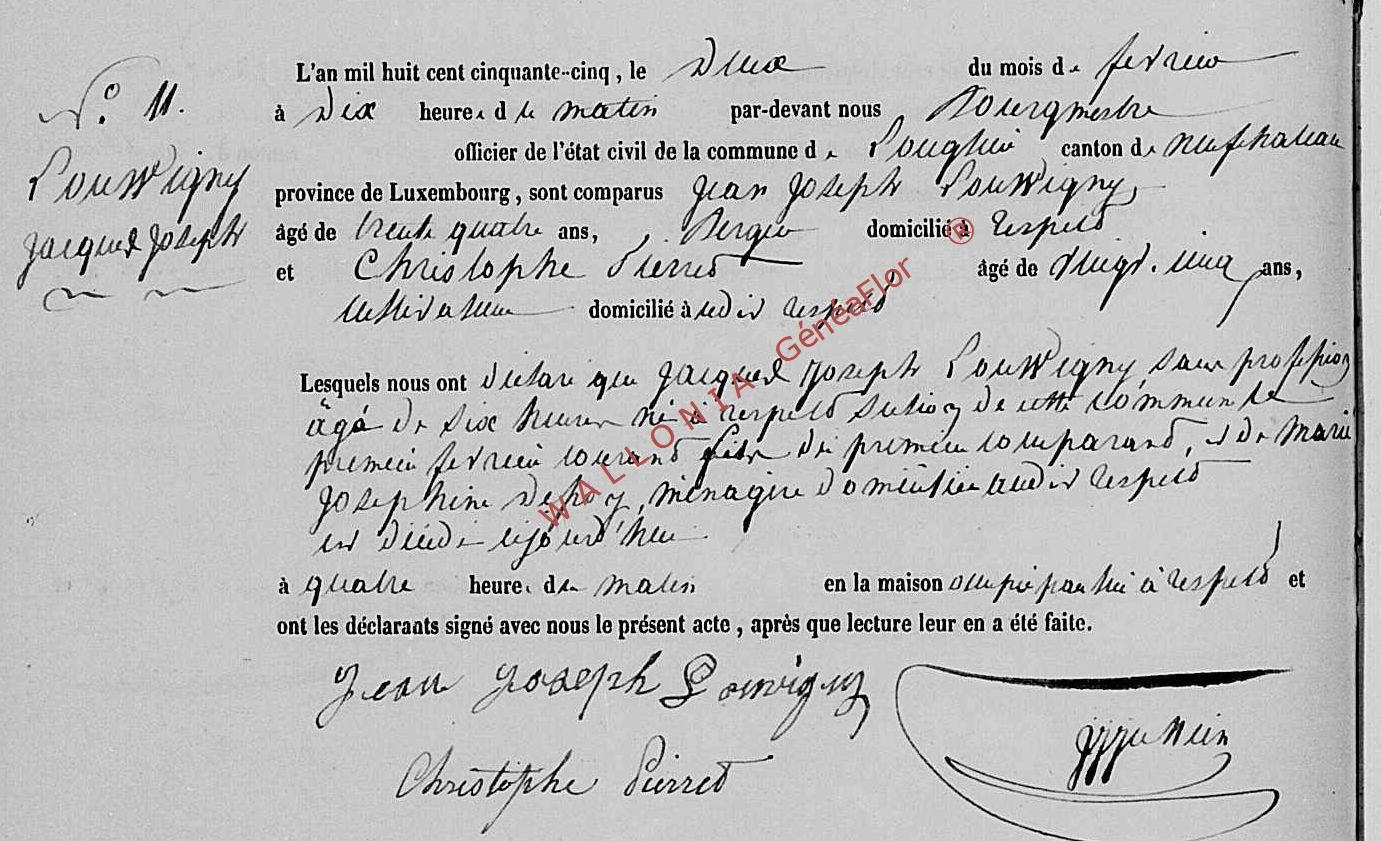 N.° 11.
Louwigny
Jacques Joseph
L'an mil huit cent cinquante-cinq, le Deux du mois de fevrier
à Dix heures du matin par-devant nous Bourgmestre
officier de l'état civil de la commune de Longlier canton de Neufchateau
province de Luxembourg, sont comparus Jean Joseph Louwigny,
âgé de trente quatre ans, Berger domicilié à Respelt
et Christophe Pierret âgé de vingt-cinq ans,
Cultivateur domicilié à udit Respelt
Lesquels nous ont déclaré que Jacques Joseph Louwigny, sans profession
âgé de six heures né à Respelt section de cette commune le
premier fevrier courant fils du premier comparant, et de Marie
Josephine ménagère domiciliée audit Respelt
est décédé cejourd'hui
à quatre heures du matin en la maison occupée par lui à Respelt et
ont les déclarants signé avec nous le présent acte, après que lecture leur en a été faite.
Jean Joseph Louvigny
Christophe Pierret
WALLONIA GéneaFlor ®